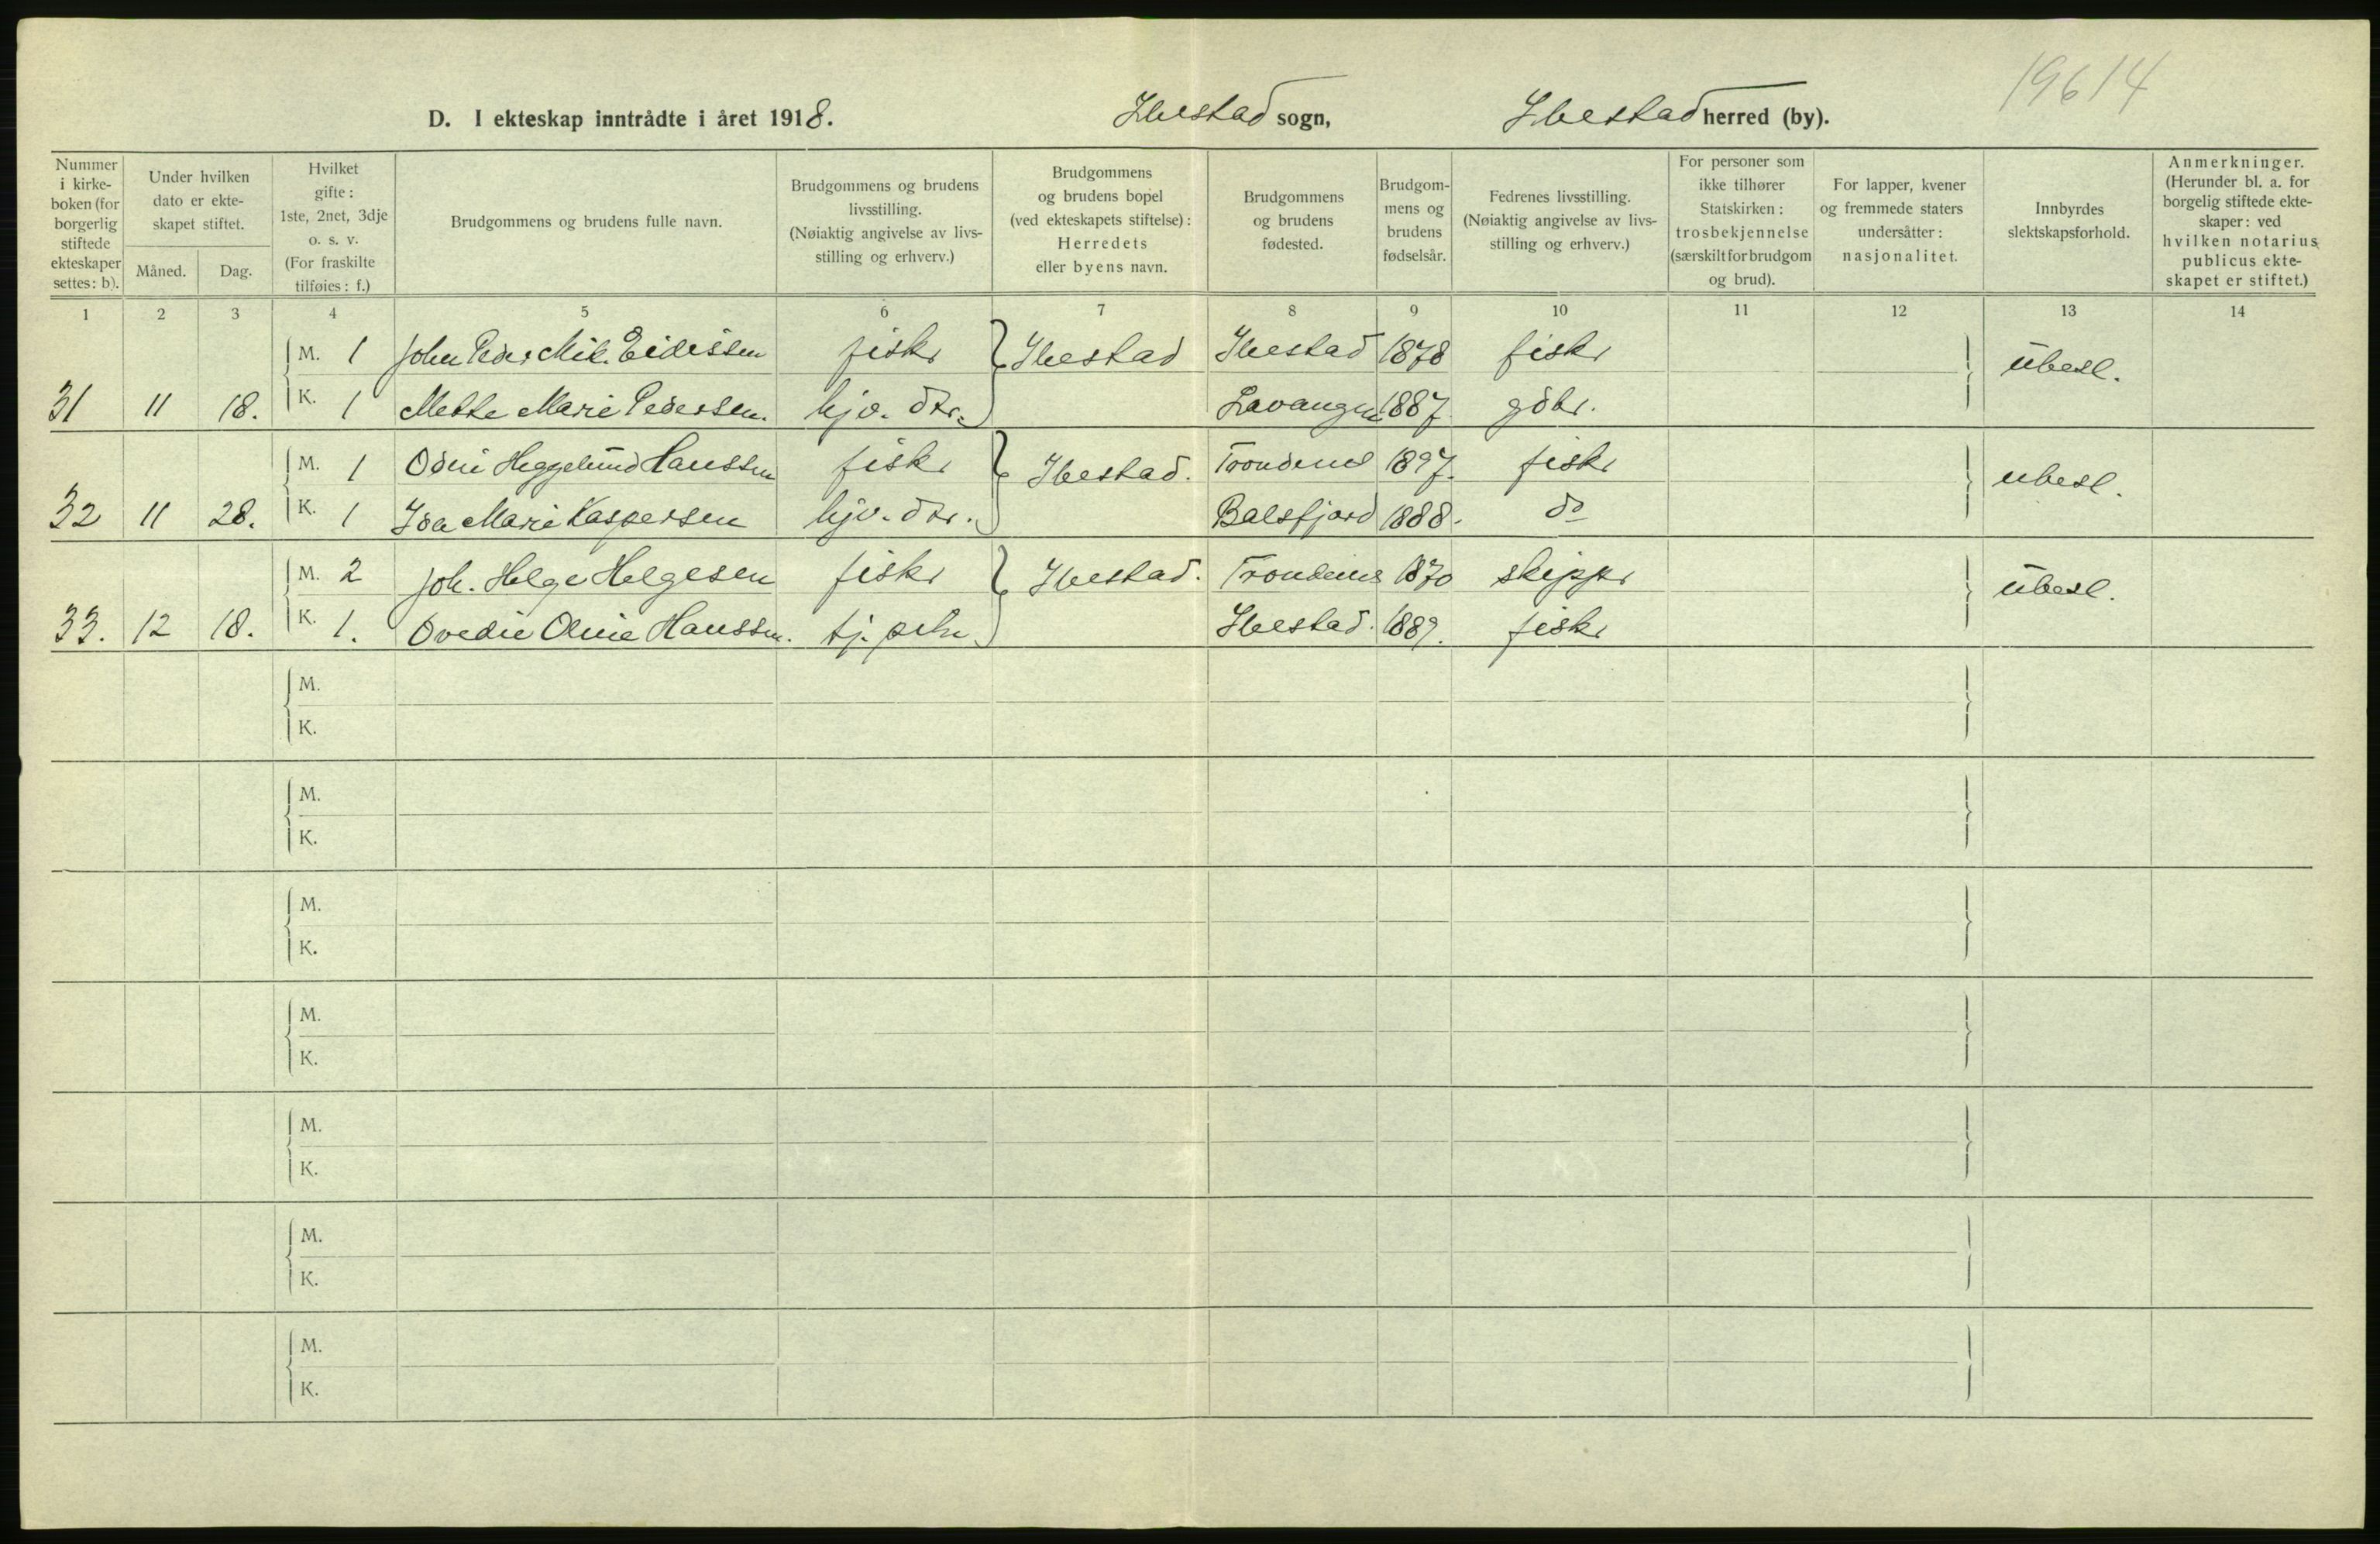 19614
D. I ekteskap inntrådte i året 1918. Ibestad sogn, Ibestad herred (by).
Nummer i kirke-boken (for borgerlig stiftede ekteskaper settes: b).
Under hvilken dato er ekte-skapet stiftet.
Måned. Dag.
Hvilket gifte: 1ste, 2net, 3dje o. s. v. (For fraskilte tilføies: f.)
Brudgommens og brudens fulle navn.
Brudgommens og brudens livsstilling. (Nøiaktig angivelse av livs-stilling og erhverv.)
Brudgommens og brudens bopel (ved ekteskapets stiftelse): Herredets eller byens navn.
Brudgommens og brudens fødested.
Brudgom-mens og brudens fødselsår.
Fedrenes livsstilling. (Nøiaktig angivelse av livs-stilling og erhverv.)
For personer som ikke tilhører Statskirken: trosbekjennelse (særskilt for brudgom og brud).
For lapper, kvener og fremmede staters undersåtter: nasjonalitet.
Innbyrdes slektskapsforhold.
Anmerkninger. (Herunder bl. a. for borgelig stiftede ekte-skaper: ved hvilken notarius publicus ekte-skapet er stiftet.)
1 2 3 4 5 6 7 8 9 10 11 12 13 14
M. 1 John Peder Mik. Eidissen fiskr Ibestad Ibestad 1878 fiskr ubesl.
31 11 18. K. 1 Mette Marie Pedersen. hjv. dtr. Lavangen 1887 gdbr.
M. 1 Odni Heggelund Hanssen fiskr Ibestad. Trondenes 1897. fiskr ubesl.
32 11 28. K. 1 Ida Marie Kaspersen hjv. dtr. Balsfjord 1888. do
M. 2 Joh. Helge Helgesen fiskr Ibestad. Trondenes 1870 skippr ubesl.
33. 12 18. K. 1. Ovedie Oline Hanssen. tj. Ibestad. 1889. fiskr
M.
K.
M.
K.
M.
K.
M.
K.
M.
K.
M.
K.
M.
K.